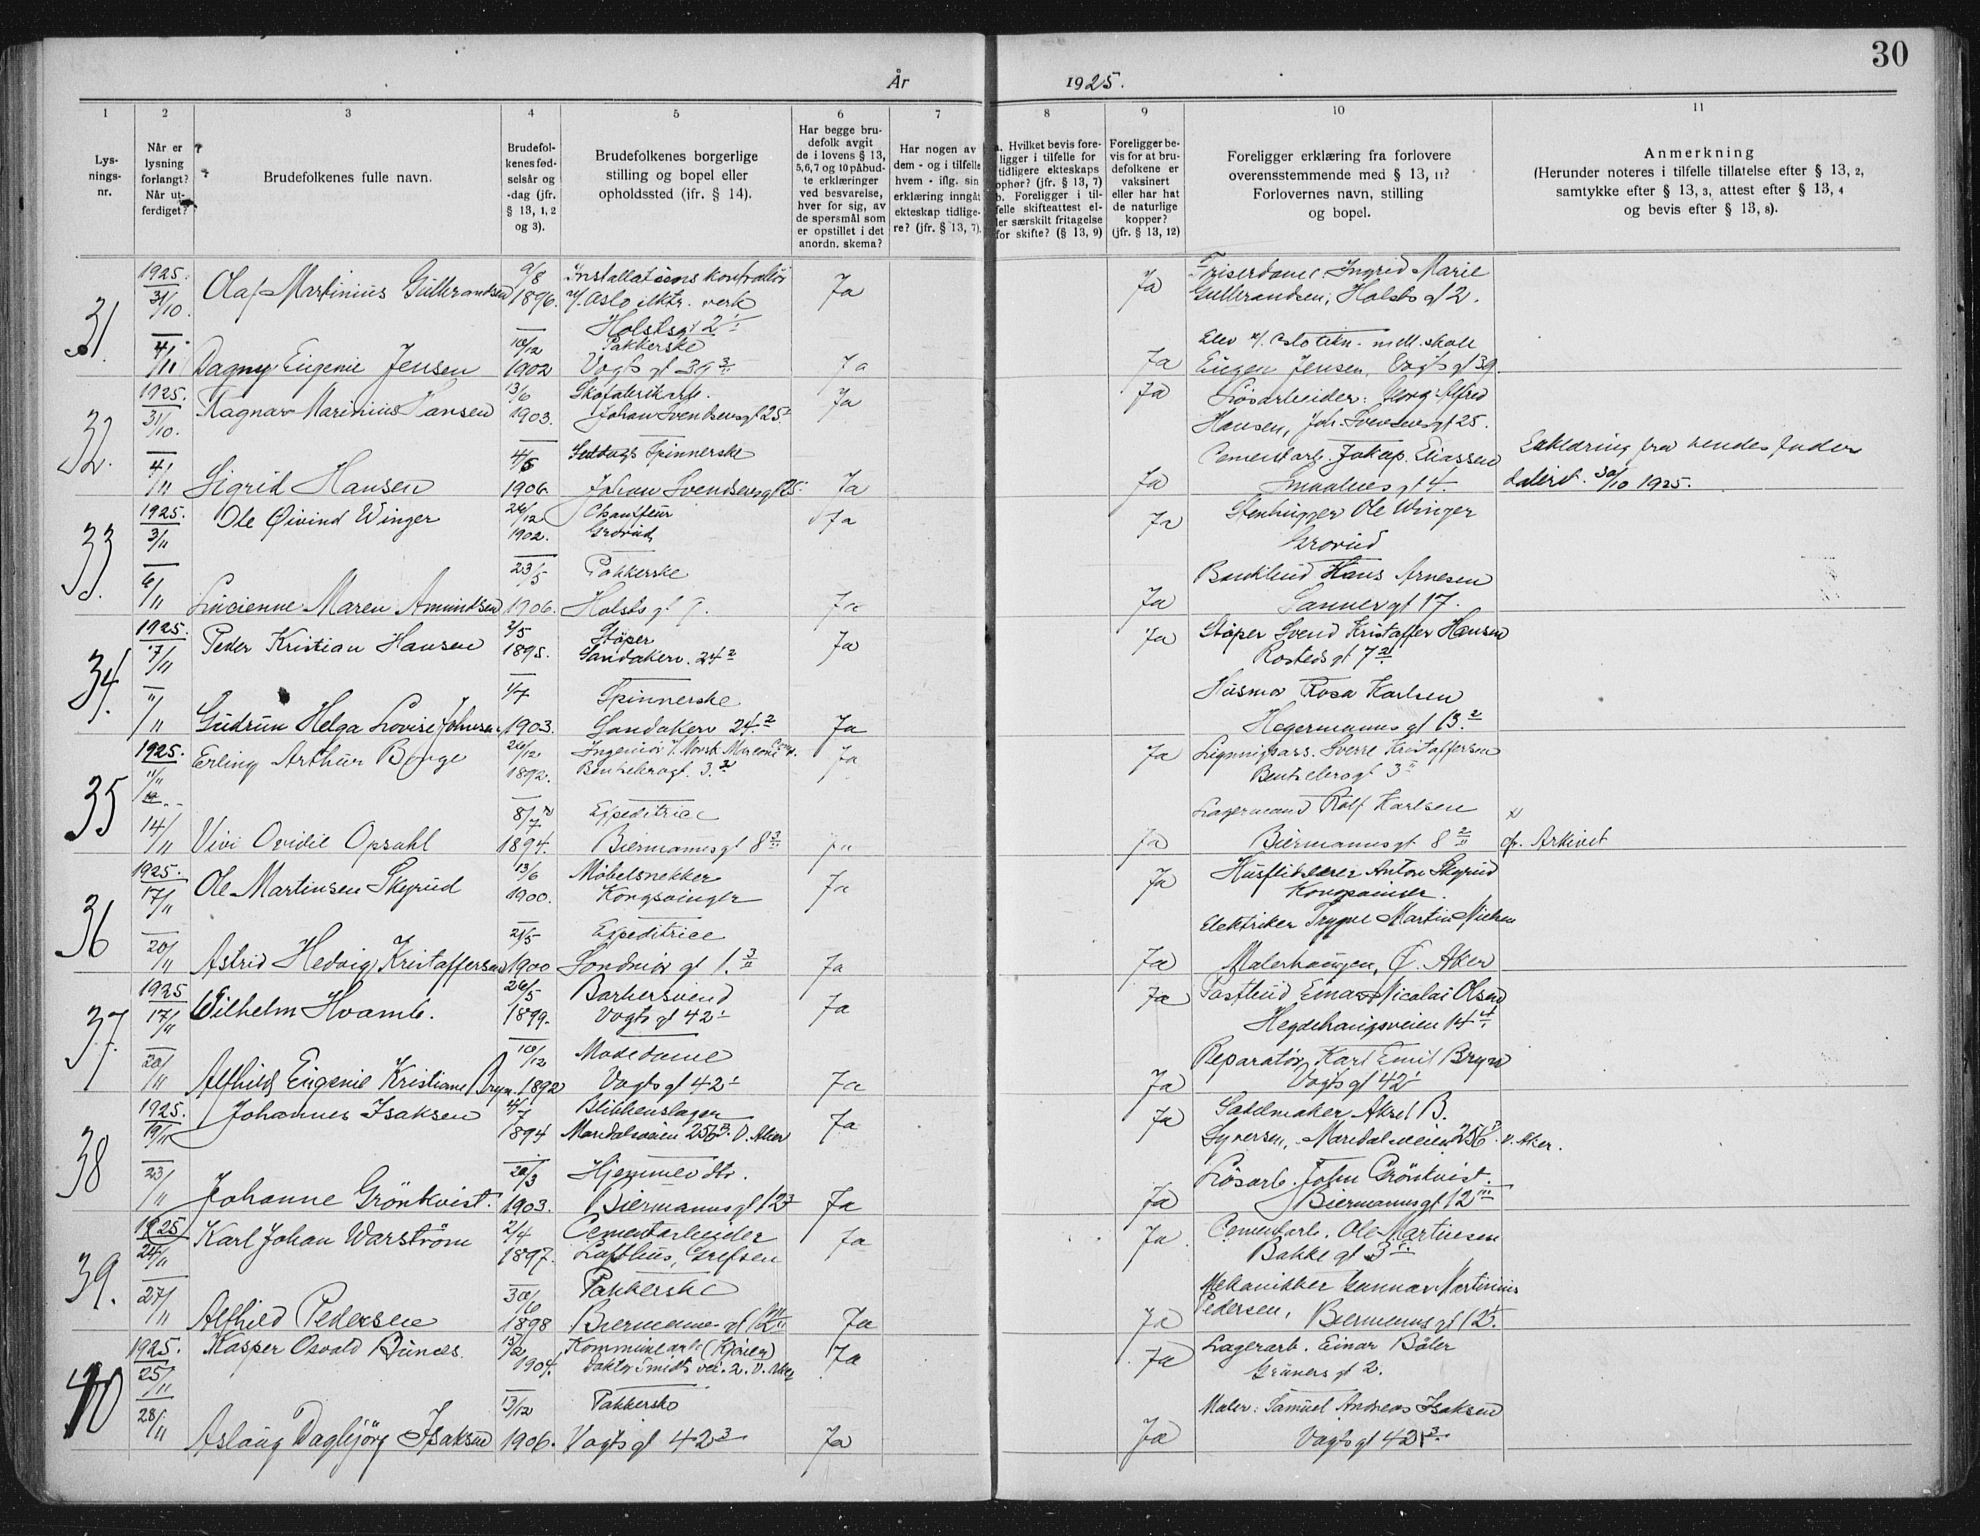 30
År 1925.
1 2 3 4 5 6 7 8 9 10 11
Lys-
nings-
nr.
Når er
lysning
forlangt?
Når ut-
ferdiget?
Brudefolkenes fulle navn.
Brudefol-
kenes fød-
selsår og
-dag (jfr.
§ 13, 1, 2
og 3).
Brudefolkenes borgerlige
stilling og bopel eller
opholdssted (jfr. § 14).
Har begge bru-
defolk avgit
de i lovens § 13,
5,6,7 og 10 påbud-
te erklæringer
ved besvarelse,
hver for sig, av
de spørsmål som
er opstillet i det
anordn. skema?
Har nogen av
dem - og i tilfelle
hvem - iflg. sin
erklæring inngåt
ekteskap tidlige-
re? (jfr. § 13, 7).
a. Hvilket bevis fore-
ligger i tilfelle for
tidligere ekteskaps
ophør? (jfr. § 13, 7)
b. Foreligger i til-
felle skifteattest el-
ler særskilt fritagelse
for skifte? (§ 13, 9)
Foreligger be-
vis for at bru-
defolkene er
vaksinert
eller har hat
de naturlige
kopper?
(jfr. § 13, 12)
Foreligger erklæring fra forlovere
overensstemmende med § 13, 11?
Forlovernes navn, stilling
og bopel.
Anmerkning
(Herunder noteres i tilfelle tillatelse efter § 13, 2,
samtykke efter § 13, 3, attest efter § 13, 4
og bevis efter § 13, 8).
31.
1925. 31/10. Olaf Martinius Gulbrandsen 9/8 1896. Installationskontrollør
v/ Oslo elktr. verk
Holstsgt 2
Ja Ja Friserdame Ingrid Marie
Gulbrandsen, Holsts gt 2.
4/11 Dagny Eugenie Jensen 10/12 1902 Pakkerske
Vogts gt 39
Ja Ja Elev v/ Oslo tekn. mell. skole
Eugen Jensen, Vogts gt 39.
32.
1925. 31/10. Ragnar Marinius Hansen 13/6 1903. Skofabrikarb.
Johan Svendsensgt 25
Ja Ja Løsarbeider: Georg Alfred
Hansen, Joh. Svensensgt 25.
4/11 Sigrid Hansen 4/5 1906. Spinnerske
Johan Svendsensgt 25
Ja Ja Cementarb. Jakop Eliassen
Smaalens gt 4.
Erklæring fra hendes fader
datert 30/10 1925.
33.
1925. 3/11 Ole Øivind Winger 26/12 1902. Chauffeur
Grorud
Ja Ja Stenhugger Ole Winger
Grorud
6/11 Lucienne Maren Amundsen 23/5 1906. Pakkerske
Holsts gt 9.
Ja Ja Hans Arnesen
Sannergt 17.
34.
1925. 7/11 Peder Kristian Hansen 2/5 1895. Støper
Sandakerv. 24 2
Ja Ja Støper Svend Kristoffer Hansen
Rostedsgt 7
11/11 Gudrun Helga Lovise Johnsen 1/7 1903. Spinnerske
Sandakerv 24. 2
Ja Ja Husmor Rosa Karlsen
Hegermanns gt 13. 2
35
1925. 11/11 Erling Arthur Borge 26/12 1892. Ingeniør v. Norsk Marconi Comp.
Bentsebrogt. 3.
Ja Ja Ligningsass. Sverre Kristoffersen
Bentsebrogt 3
14/11 Vivi Ovidie Opsahl 8/7 1894. Expeditrice
Biermannsgt 8
Ja Ja Lagermand Rolf Karlsen
Biermannsgt 8
x)
cfr. Arkivet
36
1925. 17/11 Ole Martinsen Skyrud 13/6 1900. Møbelsnekker
Kongsvinger
Ja Ja Husflidslærer Anton Skyrud
Kongsvinger.
20/11 Astrid Hedvig Kristoffersen 21/5 1900 Expeditrice
Søndmør gt 1.
Ja Ja Elektriker Trygve Martin Nielsen
Malerhaugen, Ø. Aker
37.
1925 17/11 Wilhelm Hvamb. 26/5 1899. Barbersvend
Vogts gt 42
Ja Ja Postbud Einar Nicolai Olsen
Hegdehaugsveien 14
20/11 Alfhild Eugenie Kristiane Bryn. 10/12 1892 Modedame
Vogts gt 42
Ja Ja Reparatør Karl Emil Bryn
Vogts gt 42
38
1925. 19/11 Johannes Isaksen 4/7 1894 Blikkenslager
Maridalsveien 256 B. V. Aker
Ja Ja Salelmaker Aksel B.
Syversen, Maridalsveien 256 V. Aker.
23/11 Johanne Grönkvist. 20/3 1903. Hjemmev. dtr.
Biermannsgt 12
Ja Ja Løsarb. John Grönkvist.
Biermannsgt 12 III
39.
1925 24/11 Karl Johan Warström 2/4 1897. Cementarbeider
Lofthus, Grefsen
Ja Ja Cementarb. Ole Martinesen
Bakke gt 3
27/11 Alfhild Pedersen 30/6 1898 Pakkerske
Biermanns gt 12
Ja Ja Mekanikker Gunnar Martinius
Pedersen, Biermannsgt 12.
40
1925. 25/11 Kasper Osvald Bünæs. 15/2 1904. Kommunearb. (Kjører)
Doktor Smidts vei. 2. V. Aker
Ja Ja Lagerarb. Einar Bøler
Grüners gt 2.
28/11 Aslaug Dagbjörg Isaksen 13/12 1906. Pakkerske
Vogts gt 42 3
Ja Ja Maler: Samuel Andreas Isaksen
Vogts gt 42